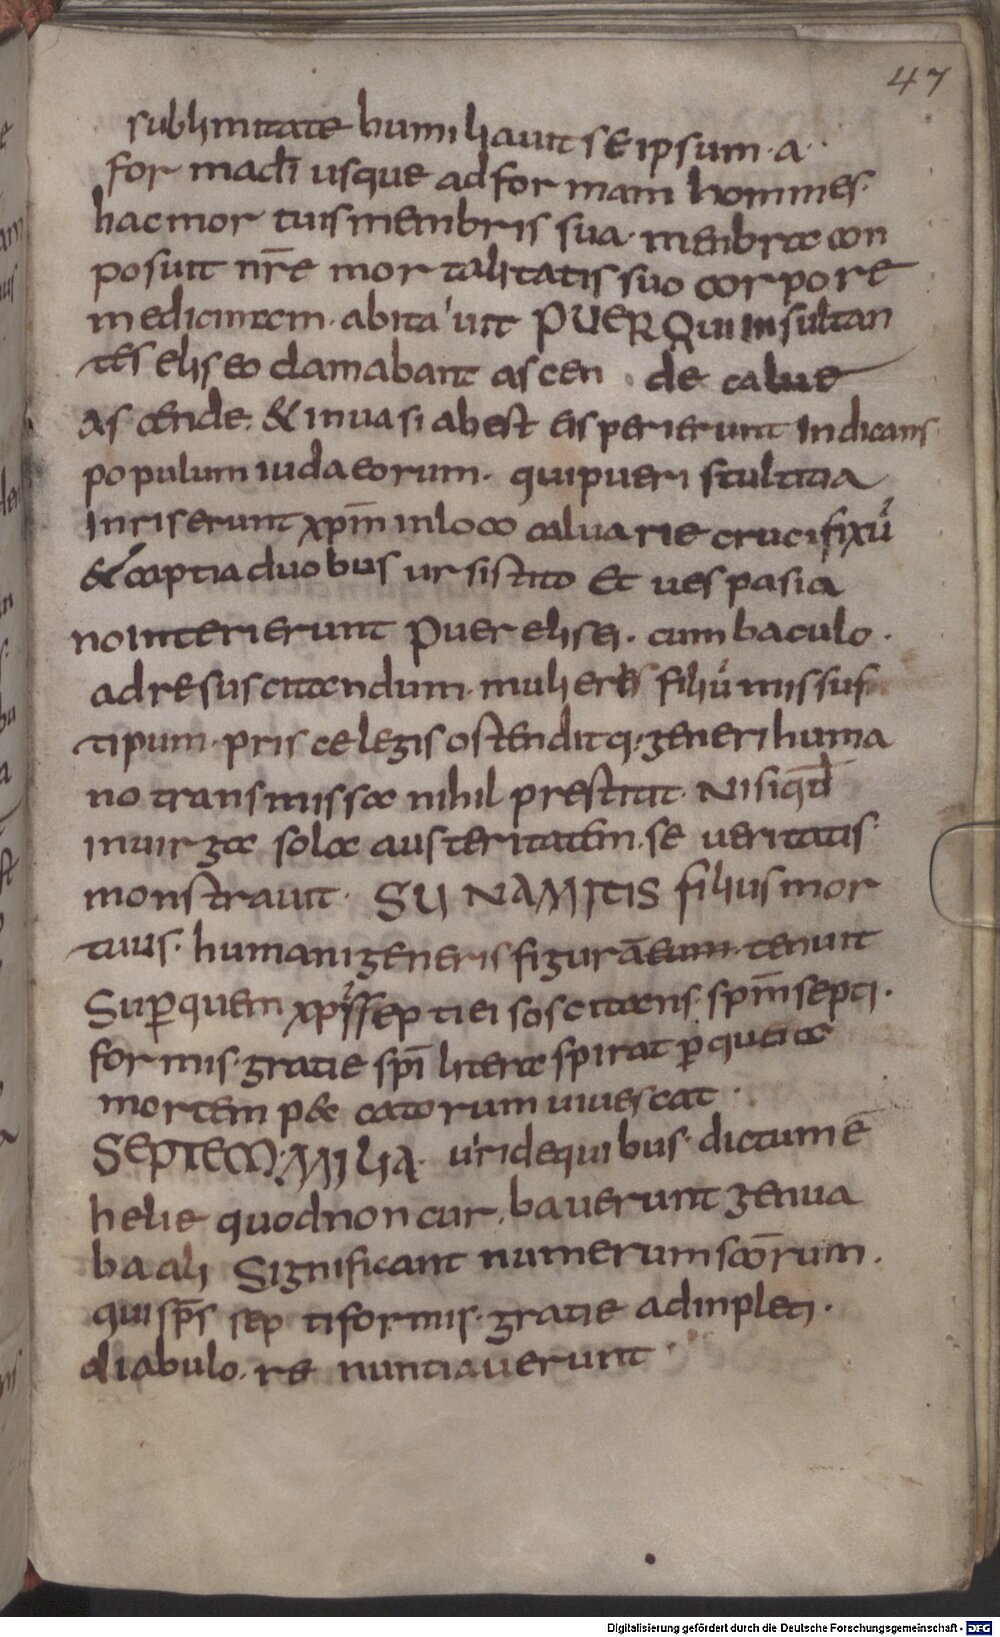 47
sublimitate humiliauit se ipsum· a·
for madi̅ usque ad for mam hominies·
hac mor tuis membris sua· menbra con
posuit nr̅e mor talitatis suo corpore
medicinam· abita'uit PUER Qui insultan
tes eliseo clamabant ascen · de calue
Ascende· & inuasi abest eis perierunt Indicans
populum iudaeorum· qui pueri stultitia
Inriserunt xpm̅ in loco caluarie crucifixu̅
& captia duobus ursis tito Et uespasia
no interierunt Puer elisei· cum baculo·
ad resuscitandum· mulieris filiu̅ missus
tipum· prisce legis ostendit q; generi huma
no transmissa nihil prestitit· Nisi qd̅
in uirga sola austeritatem· se ueritatis·
monstrauit· SUNAMITIS filius mor
tuus· humani generis figura̅ eum tenuit
Sup̱ quem xp̅s sep ti ei soscitans· spm̅ septi·
formis· gratie spi̅ litera spirat p̱ que a
mortem peccatorum uiuescat ·
SEPTEM· MILIA· uiri de quibus· dictum e̅
helie quod non cur,bauerunt genua
baali Significant numerum sco̅rum·
qui sp̅s sep tiformis· gratie adinpleti·
diabulo· re nuntiauerunt·
Digitalisierung gefördert durch die Deutsche Forschungsgemeinschaft - DFG